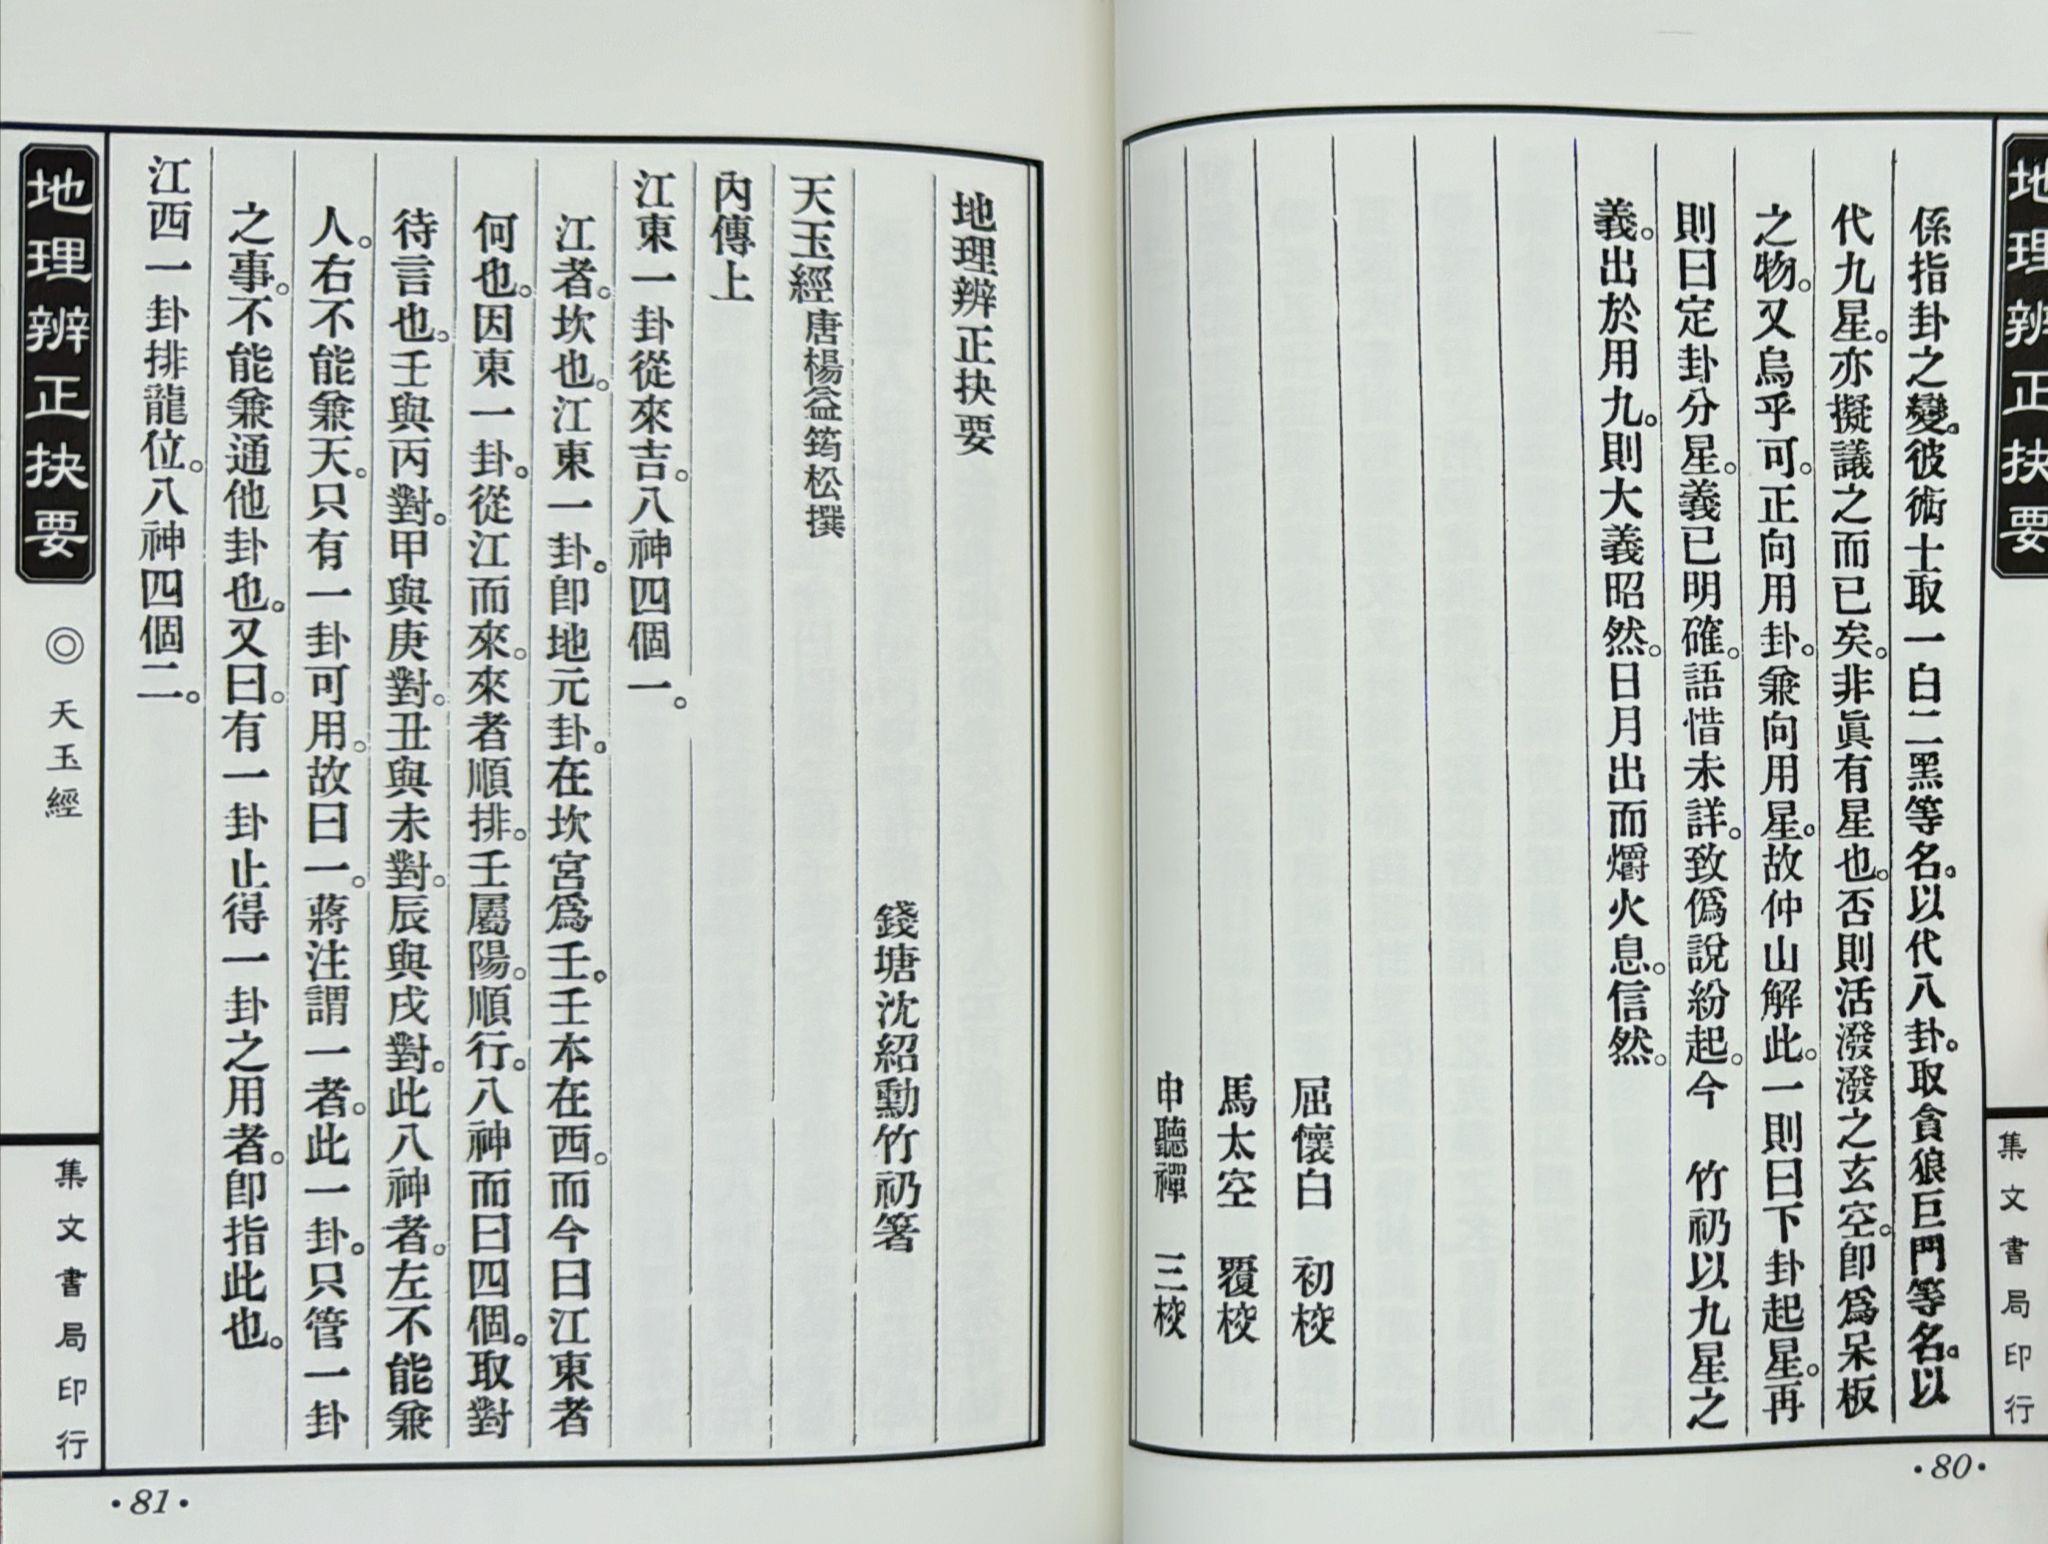 地理辨正抉要
集文書局印行
•80•
係指卦之變。彼術士取一白二黑等名。以代八卦。取貪狼巨門等名。以
代九星。亦擬議之而已矣。非眞有星也。否則活潑潑之玄空。卽爲呆板
之物。又烏乎可。正向用卦。兼向用星。故仲山解此。一則曰下卦起星。再
則曰定卦分星。義已明確。語惜未詳。致僞說紛起。今 竹礽以九星之
義。出於用九。則大義昭然。日月出而爝火息。信然。
屈懷白 初校
馬太空 覆校
申聽禪 三校
地理辨正抉要
錢塘沈紹勳竹礽箸
天玉經 唐楊益筠松撰
內傳上
江東一卦從來吉。八神四個一。
江者。坎也。江東一卦。卽地元卦。在坎宮爲壬。壬本在西。而今曰江東者
何也。因東一卦。從江而來。來者順排。壬屬陽。順行。八神而曰四個。取對
待言也。壬與丙對。甲與庚對。丑與未對。辰與戌對。此八神者。左不能兼
人。右不能兼天。只有一卦可用。故曰一。蔣注謂一者。此一卦。只管一卦
之事。不能兼通他卦也。又曰。有一卦止得一卦之用者。卽指此也。
江西一卦排龍位。八神四個二。
地理辨正抉要
◎天玉經
集文書局印行
•81•